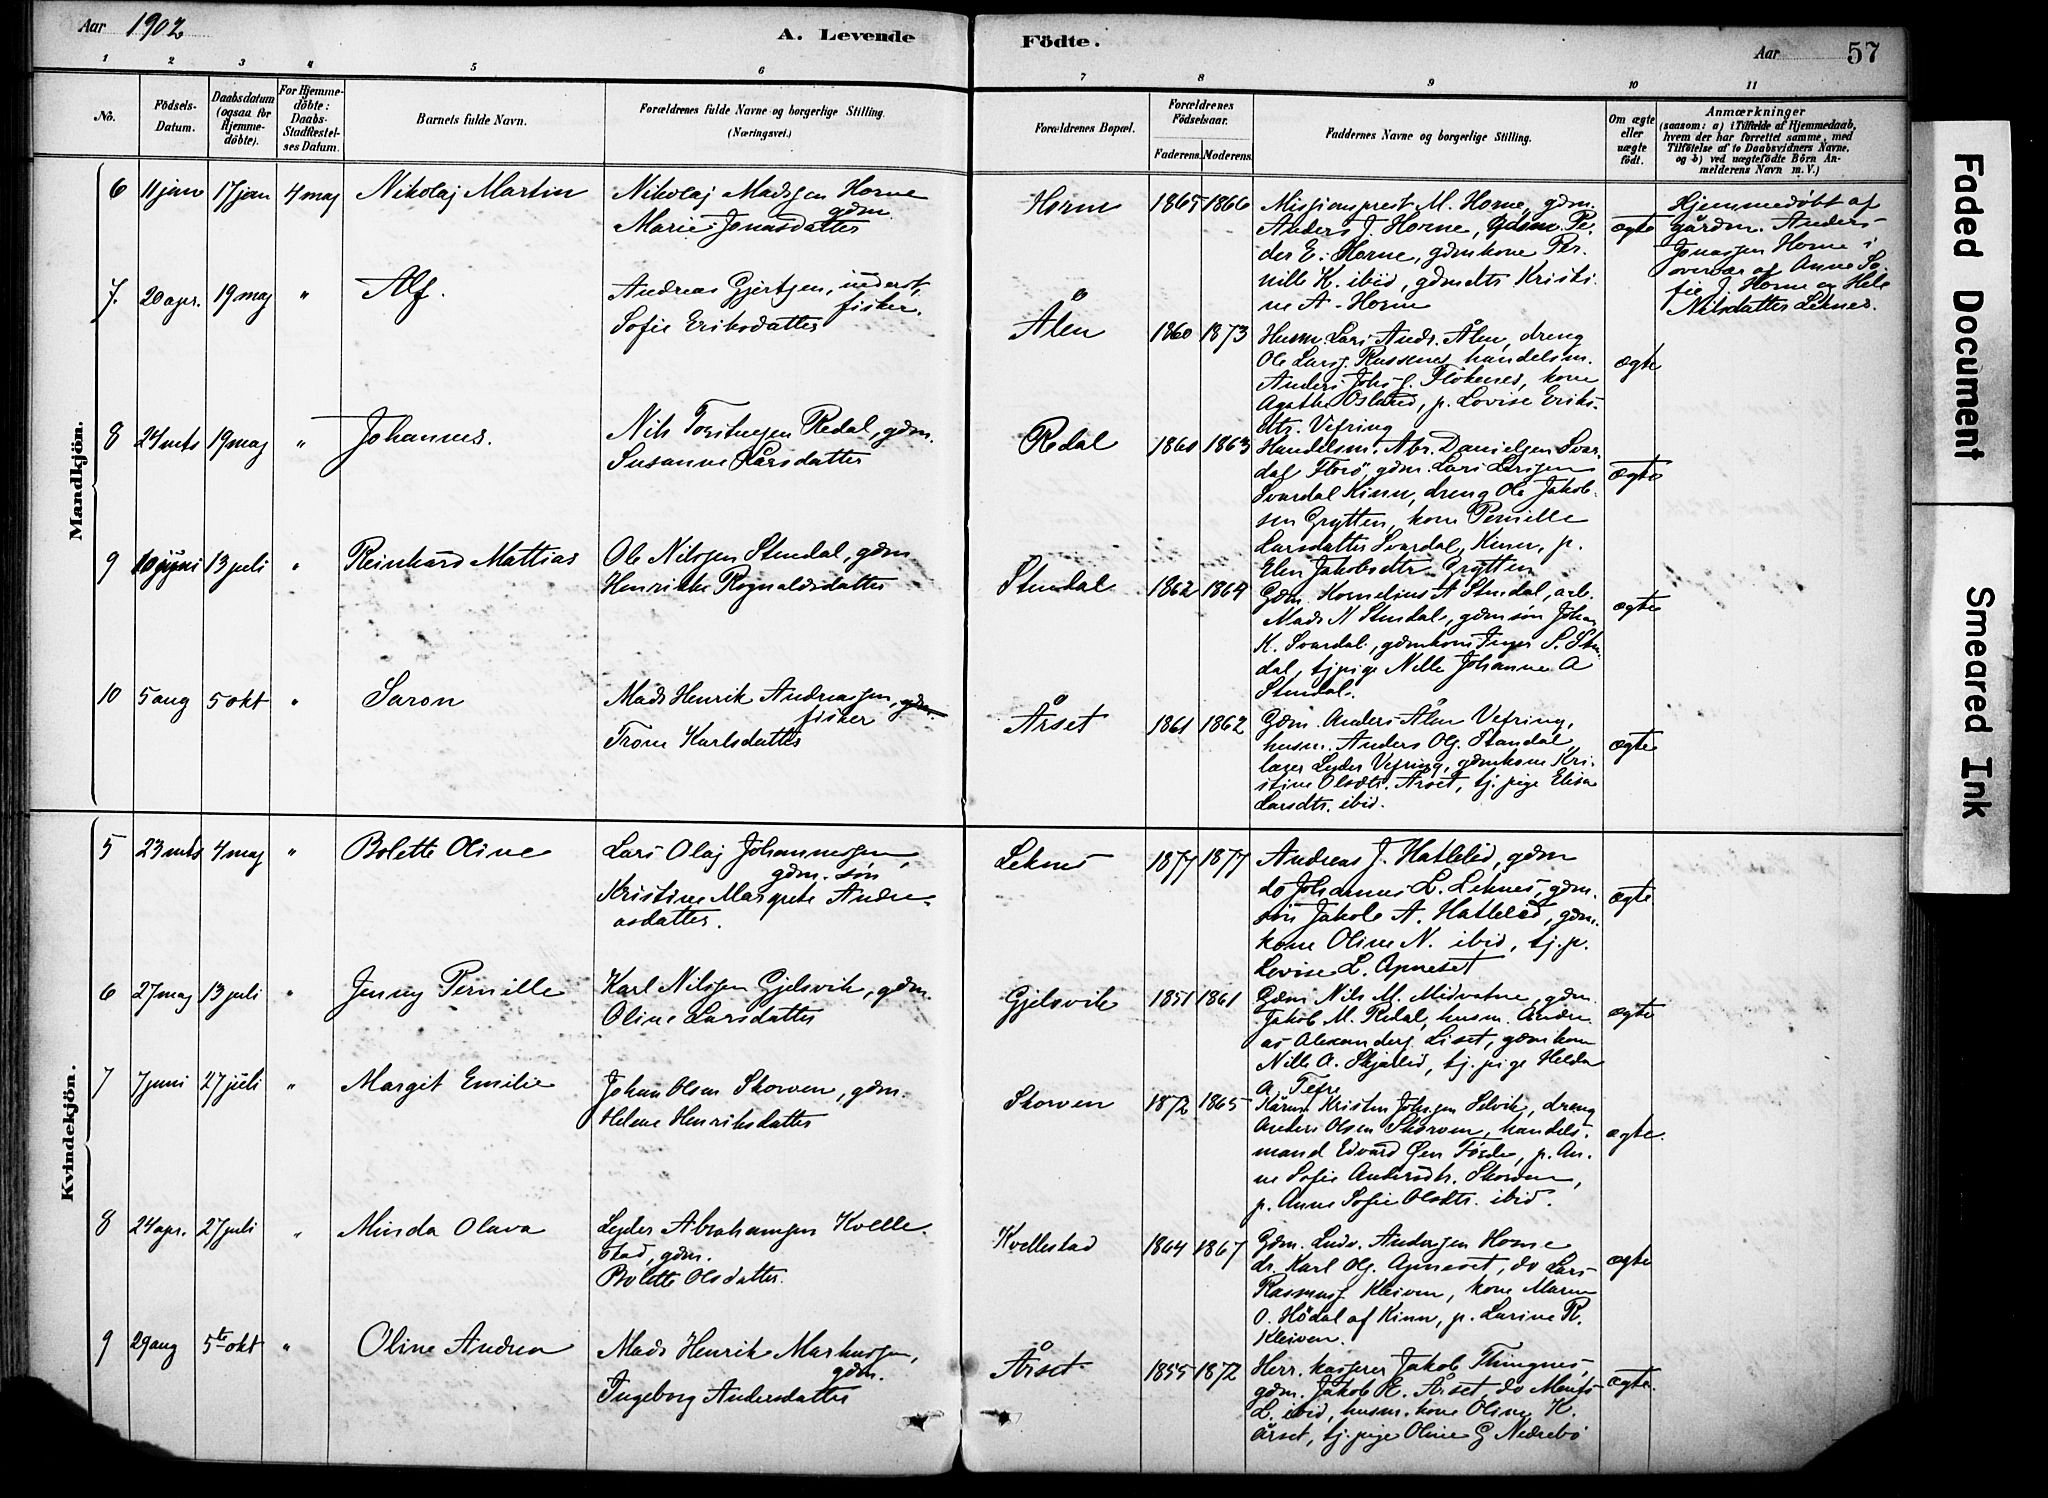 Aar 1902
A. Levende Födte.
Aar
57
1 2 3 4 5 6 7 8 9 10 11
No.
Födsels-Datum.
Daabsdatum (ogsaa for Hjemmedöbte).
For Hjemmedöbte: Daabs-Stadfæstelses Datum.
Barnets fulde Navn.
Forældrenes fulde Navne og borgerlige Stilling. (Næringsvei.)
Forældrenes Bopæl.
Forældrenes Födselsaar.
Faderens. Moderens.
Faddernes Navne og borgerlige Stilling.
Om ægte eller uægte födt.
Anmærkninger (saasom: a) i Tilfælde af Hjemmedaab, hvem der har forrettet samme, med Tilföielse af to Daabsvidners Navne. og b) ved uægtefödte Börn Anmelderens Navn m. V.)
Mandkjön.
6 11 jan 17 jan 4 maj Nikolaj Martin
Nikolaj Madsen Horne
gdm.
Marie Jonasdatter
Horne 1865 1866
Missionsprest M. Horne, gdm.
Anders J. Horne, gdsm. Pe-
der E. Horne, gdmkone Per-
nille K. ibid, gdmdtr Kristi-
ne A. Horne
ægte
Hjemmedøbt af
gårdm. Anders
Jonassen Horne i
overvær af Anne So-
fie J. Horne og Hele
Nilsdatter Leknes.
7. 20 apr. 19 maj " Alf.
Andreas Gjertsen, inderst,
fisker.
Sofie Eriksdatter
Ålen 1860 1873
Husm. Lars Andr. Ålen, dreng
Ole Larss. Russenes, handelsm.
Anders Johs f. Flokenes, kone
Agathe Osland, p. Lovise Eriks-
dtr. Vefring
ægte
8 24 mts 19 maj " Johannes.
Nils Torstensen Redal, gdm.
Susanne Larsdatter
Redal 1860 1863
Handelsm. Abr. Danielsen Svar-
dal Florø, gdm. Lars Larssen
Svardal Kinn, dreng Ole Jakob-
sen Grytten, kone Pernille
Larsdatter Svardal, Kinn, p.
Elen Jakobsdtr Grytten
ægte
9 10 juni 13 juli " Reinhard Mattias
Ole Nilssen Stendal, gdm
Henrikke Rognaldsdatter
Stendal 1862 1864
Gdm. Kornelius A Stendal, arb.
Mads N Stendal, gdmsøn Johan
K. Svardal, gdmkone Inger S. Sten-
dal, tj.pige Nille Johanne A
Stendal.
ægte
10 5 aug 5 okt " Saron
Mads Henrik Andreassen, gdm.
fisker
Trone Karlsdatter
Årset 1861 1862
Gdm. Anders Ålen Vefring,
husm. Anders Ols. Standal,
lærer Leder Vefring, gdmkone Kri-
stine Olsdtr. Årset, tj. pige Elisa
Larsdtr. ibid.
ægte
Kvindekjön.
5 23 mts 4 maj " Bolette Oline
Lars Olaj Johannessen,
gdm. søn
Kristine Margrete Andre-
asdatter.
Leknes 1877 1877
Andreas J. Hatleløid, gdm
do Johannes L. Leknes, gdm.
søn Jakob A. Hatleløid, gdm.
kone Oline N. ibid, tj. p.
Lovise L. Apneset
ægte
6 27 maj 13 juli " Jenny Pernille
Karl Nilssen Gjelsvik, gdm.
Oline Larsdatter
Gjelsvik 1851 1861
Gdm Nils M. Midvatne, gdm.
Jakob M. Redal, husm. Andre-
as Alexanders. Liset, gdmkone
Nille A. Skjerlid, tj. pige Helda
A Tefre
ægte
7 7 juni 27 juli " Margit Emilie
Johan Olsen Skorven, gdm.
Helene Henriksdatter
Skorven 1872 1865
Kårm Kristen Johssen Selvik, dreng
Anders Olsen Skorven, handels-
mand Edvard Øen Førde, p. An-
ne Sofie Andersdtr. Skorven,
p. Anne Sofie Olsdtr. ibid.
ægte.
8 24 apr. 27 juli " Minda Olava
Leder Abrahamsen Kvelle-
stad, gdm.
Bolette Olsdatter.
Kvellestad 1864 1867
Gdm. Ludv. Anderssen Horne
dr. Karl Ols. Apneset, do Lars
Rasmuss Kleiven, kone Maren
O. Hødal af Kinn, p. Larine R.
Kleiven.
ægte
9 29 aug 5te okt " Oline Andrea
Mads Henrik Markussen,
gdm.
Ingeborg Andersdatter
Årset 1855 1872
Herr. kasserer Jakob Thingnes,
gdm. Jakob E. Årset, do
L. ibid, husm. kone Oline K.
Årset, tj. pige Oline G Nedrebø
ægte.
Faded Document
Smeared Ink